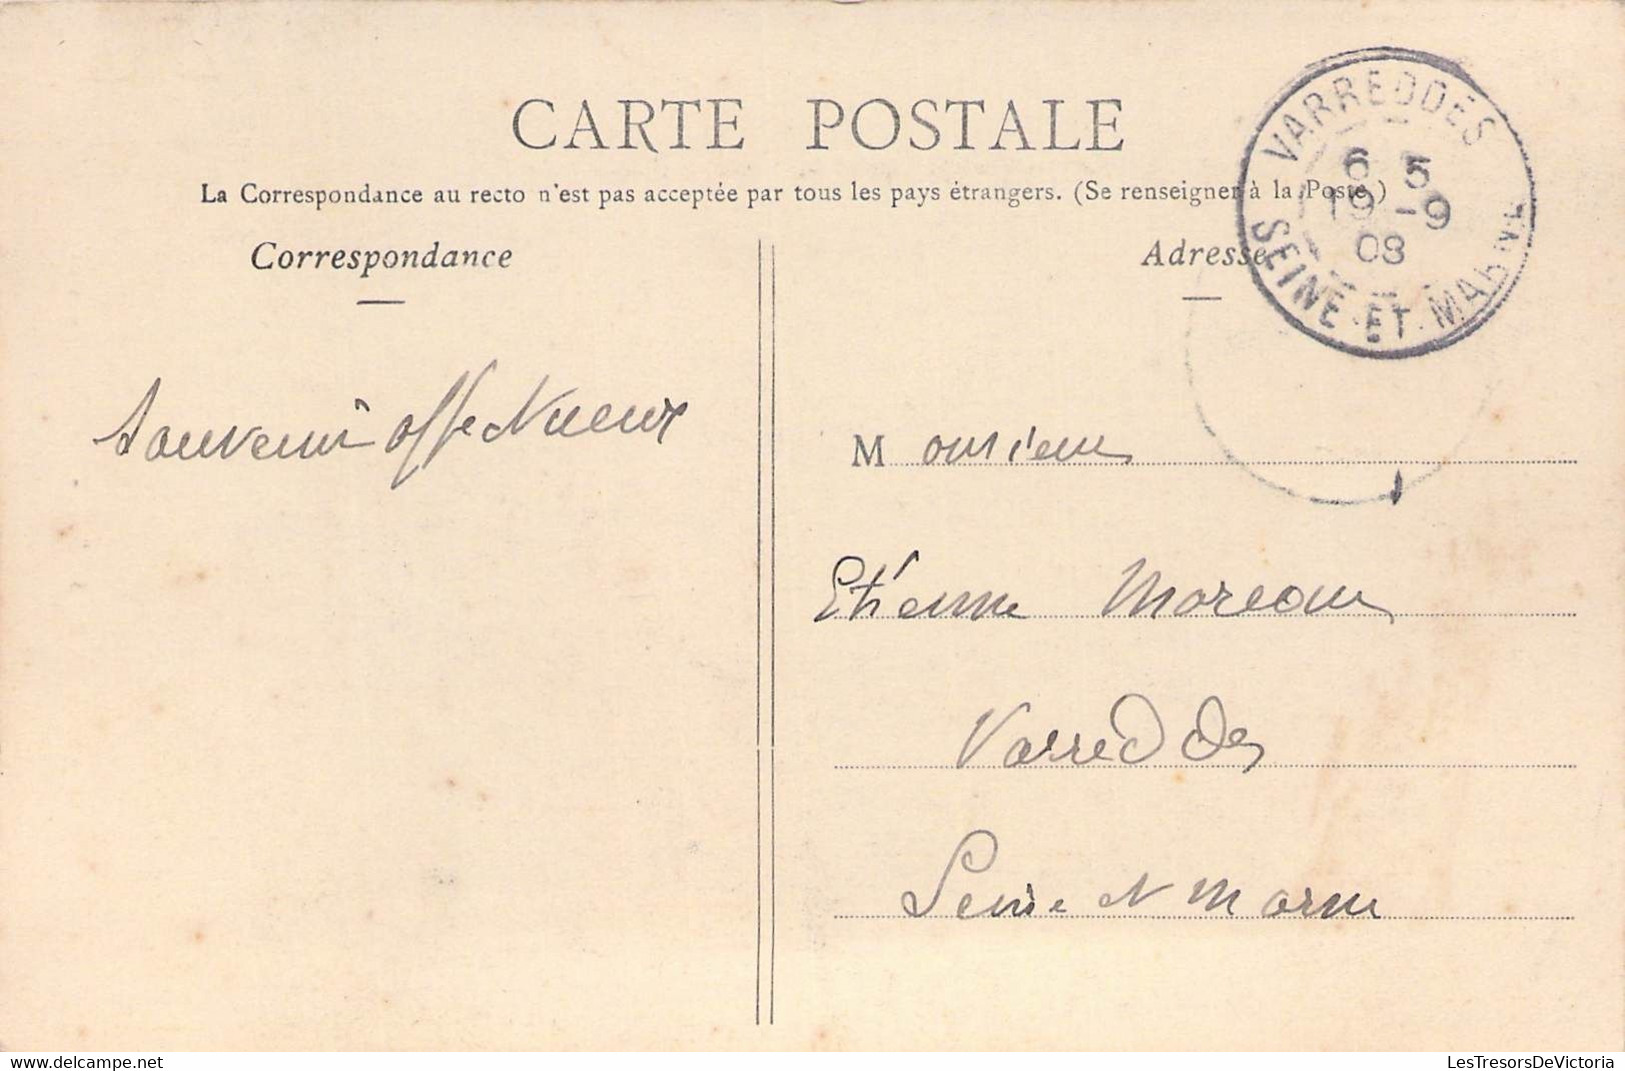 CARTE POSTALE
La Correspondance au recto n'est pas acceptée par tous les pays étrangers. (Se renseigner à la Poste.)
Correspondance
Adresse
VARREDDES
6 5
19 -9
08
SEINE-ET-MARNE
Souvenir affectueux
Monsieur
Etienne Moreau
Varreddes
Seine et Marne
www.delcampe.net
LesTresorsDeVictoria